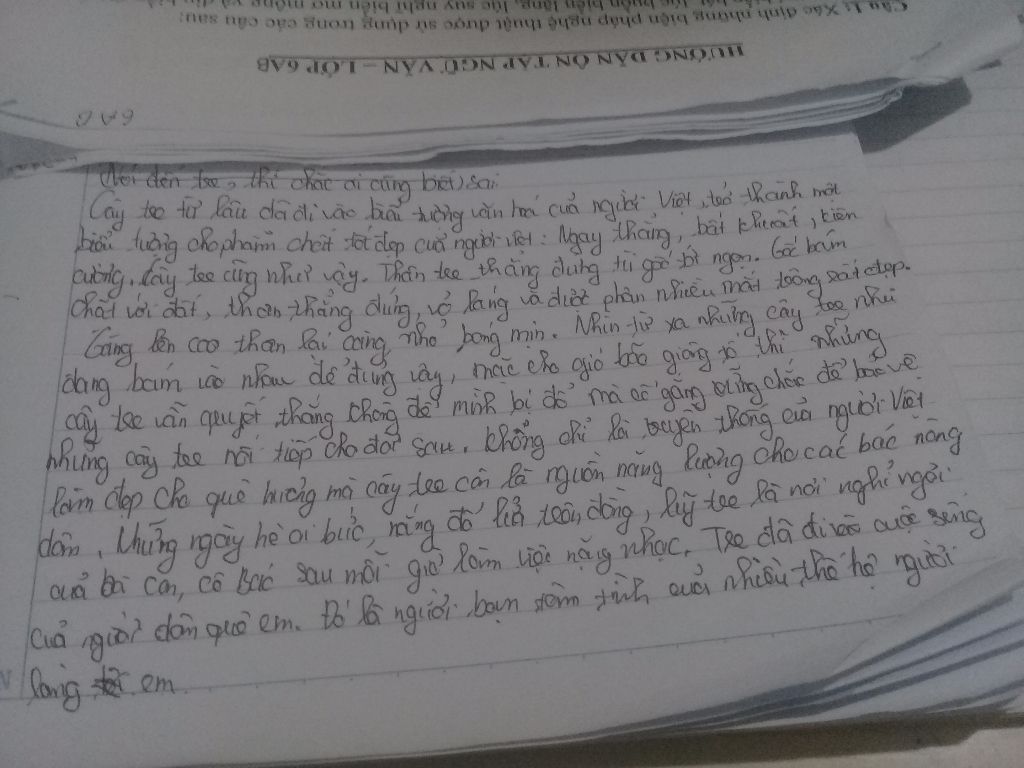 Câu 1: Xác định những biện pháp nghệ thuật được sử dụng trong các câu sau:
HƯỚNG DẪN ÔN TẬP NGỮ VĂN – LỚP 6AB
6A
Nói đến tre, thì chắc ai cũng biết
Cây tre từ lâu đã đi vào biểu tượng văn hoá của người Việt, trở thành một
biểu tượng cho phẩm chất tốt đẹp của người việt: Ngay thẳng, bất khuất, kiên
cường. Cây tre cũng như vậy. Thân tre thẳng đứng từ gốc tới ngọn. Gốc bám
chặt với đất, thân thẳng đứng, vỏ láng và được phân nhiều mắt trông rất đẹp.
Càng lên cao thân lại càng nhỏ bóng mịn. Nhìn từ xa những cây tre như
đang bám vào nhau để đứng vậy, mặc cho gió bão giông tố thì những
cây tre vẫn quyết thắng không để mình bị đổ mà cố gắng vững chắc để bảo vệ
những cây tre nối tiếp cho đời sau. Không chỉ là truyền thống của người Việt
làm đẹp cho quê hương mà cây tre còn là nguồn năng lượng cho các bác nông
dân. Những ngày hè oi bức, nắng đổ lửa trên đồng, luỹ tre là nơi nghỉ ngơi
của bà con, cô bác sau mỗi giờ làm việc nặng nhọc. Tre đã đi vào cuộc sống
của người dân quê em. Đó là người bạn tâm tình của nhiều thế hệ người
làng em.